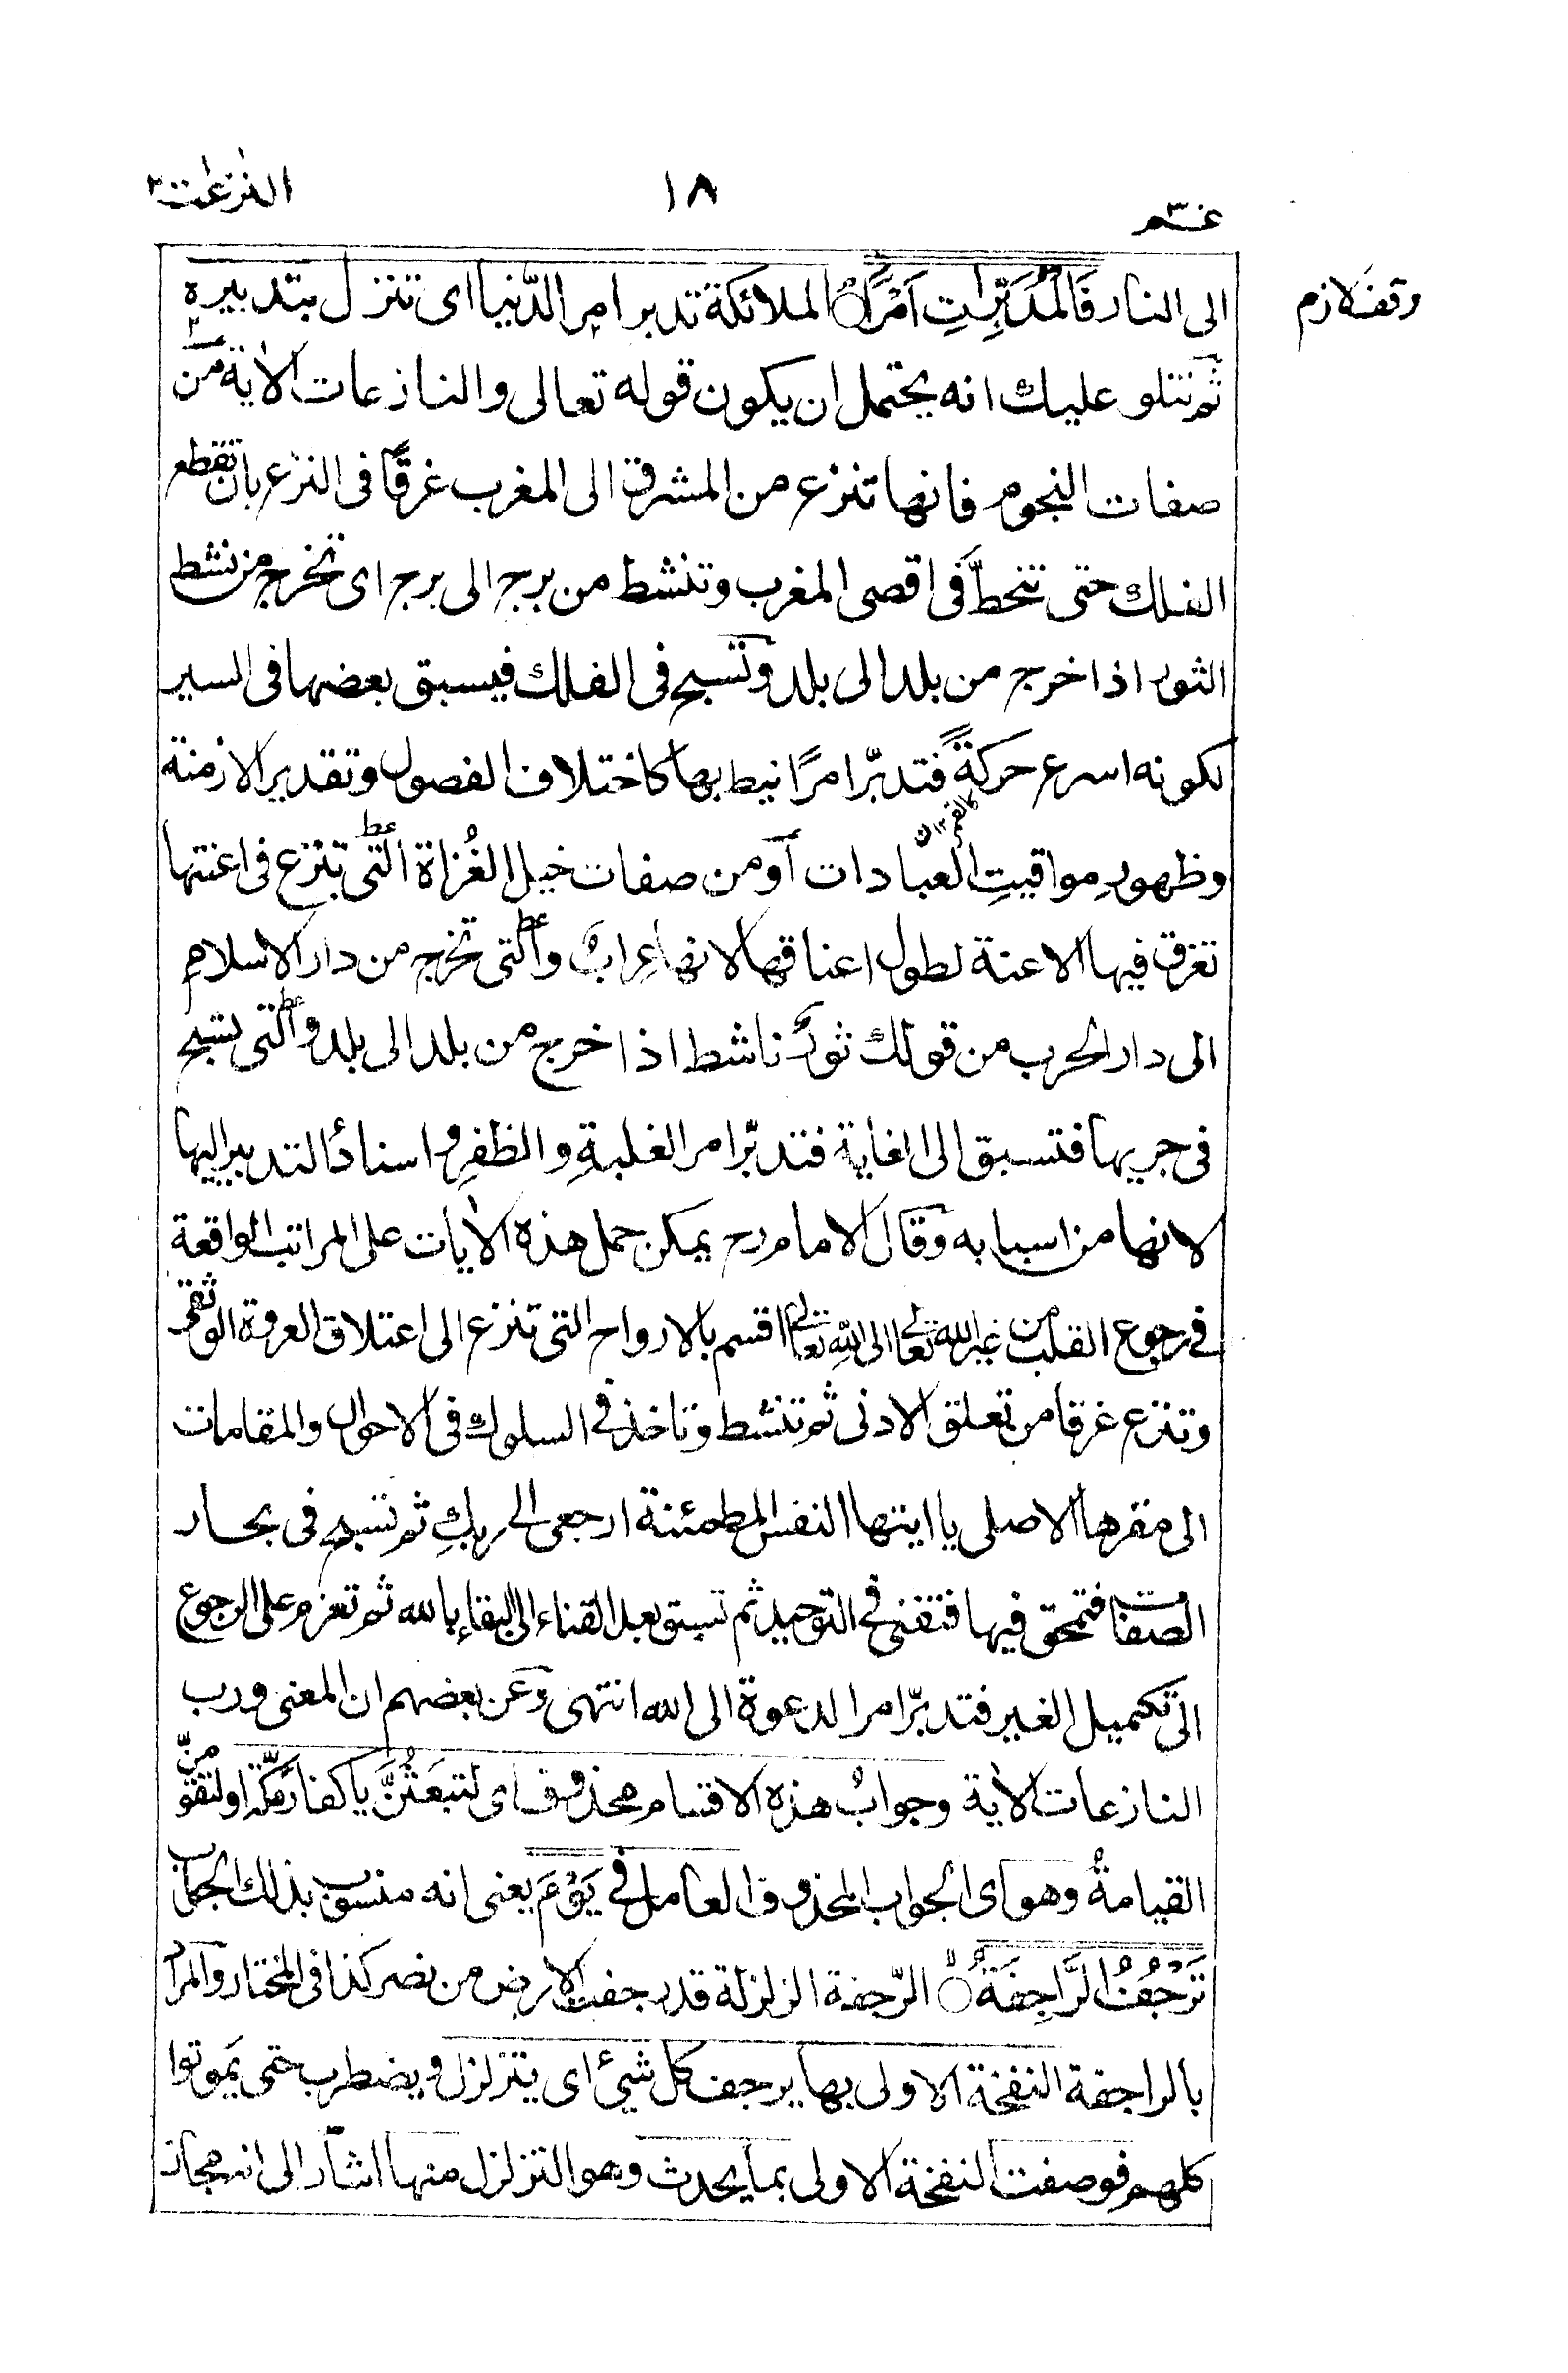 عم ٣٠
١٨
النّٰزعٰت
وقف لازم
الى النار فَالْمُدَبِّرٰاتِ اَمْرًا الملائكة تدبر امر الدّنيا اى تنزل بتدبيره
ثم نتلو عليك انه يحتمل ان يكون قوله تعالى والنازعات الاية من
صفات النجوم فانها تنزع من المشرق الى المغرب غرقًا فى النزع بان تقطع
الفلك حتى تنحطّ فى اقصى المغرب وتنشط من برج الى برج اى تخرج من نشط
الثور اذا خرج من بلد الى بلد وتسبح فى الفلك فيسبق بعضها فى السير
لكونه اسرع حركةً فتدبّر امرًا نيط بها كاختلاف الفصول وتقدير الازمنة
كالقمر
وظهورِ مواقيتِ العبادات اَو من صفات خيل الغُزاة التى تنزع فى اعنتها
تغرق فيها الاعنة لطول اعناقها لانها عِرابٌ والتى تخرج من دار الاسلام
الى دار الحرب من قولك ثورٌ ناشط اذا خرج من بلد الى بلد والتى تسبح
فى جريها فتسبق الى الغاية فتدبّر امر الغلبةِ والظفرِ واسنادُ التدبير اليها
لانها من اسبابه وقال الامام رح يمكن حمل هذه الاٰيات على المراتب الواقعة
فى رجوع القلب من غير الله تعالى الى الله تعالى اقسم بالارواح التى تنزع الى اعتلاق العروة الوثقى
وتنزع غرقا من تعلق الادنى ثم تنشط وتاخذ فى السلوك فى الاحوال والمقامات
الى مقرها الاصلى يا ايتها النفس المطمئنة ارجعى الى ربكِ ثم تسبح فى بحار
الصفات فتمحق فيها فتفنى فى التوحيد ثم تستبق بعد الفناء الى البقاءِ بالله ثم تعزم على الرجوع
الى تكميل الغير فتدبّر امر الدعوة الى الله انتهى وعن بعضهم ان المعنى ورب
النازعات الاٰية وجوابُ هذه الاقسام محذوف اى لتبعَثُنَّ يا كفار مكّة او لتقومنّ
القيامةُ وهو اى الجواب المحذوف العامل فى يَوْمَ يعنى انه منسوب بذلك الجواب
تَرْجُفُ الرَّاجِفَةُ الرّجفة الزلزلة قد رجفت الارض من نصر كذا فى المختار والمراد
بالراجفة النفخة الاولى بها يرجف كل شيئ اى يتزلزل ويضطرب حتى يَموتوا
كلهم فوصفت النفخة الاولى بما يحدث وهو التزلزل منها اشار الى انه مجاز